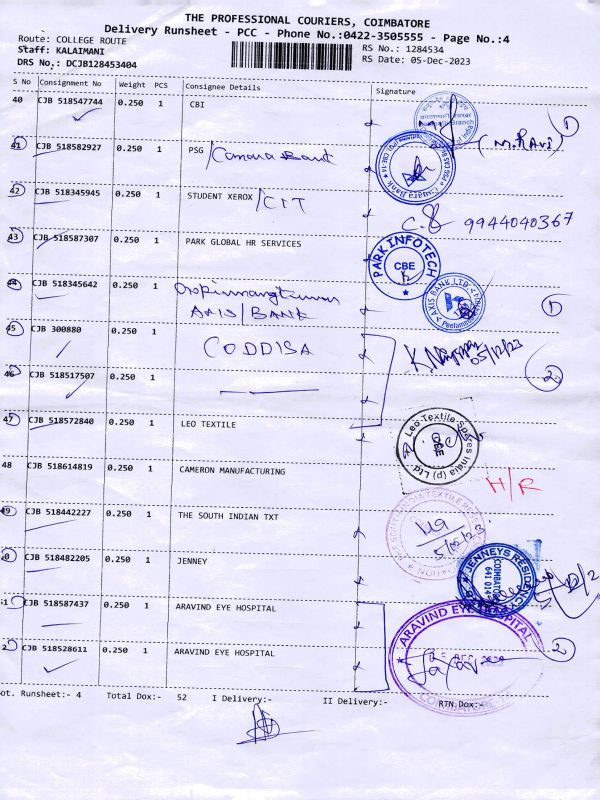 THE PROFESSIONAL COURIERS, COIMBATORE
Delivery Runsheet - PCC - Phone No.:0422-3505555 - Page No.:4
Route: COLLEGE ROUTE
Staff: KALAIMANI
DRS No.: DCJB128453404
RS No.: 1284534
RS Date: 05-Dec-2023
S No Consignment No Weight PCS Consignee Details Signature
40 CJB 518547744 0.250 1 CBI
(M.Ravi) 1
41 CJB 518582927 0.250 1 PSG /Canara Bank
42 CJB 518345945 0.250 1 STUDENT XEROX /CIT 9944040367
43 CJB 518587307 0.250 1 PARK GLOBAL HR SERVICES
PARK INFOTECH
CBE
44 CJB 518345642 0.250 1
AXIS/BANK
AXIS BANK LTD
1
45 CJB 300880 0.250 1 CODDISA
05/12/23
2
46 CJB 518517507 0.250 1
47 CJB 518572840 0.250 1 LEO TEXTILE
Leo-Textile-Spares India (p) Ltd
CBE
48 CJB 518614819 0.250 1 CAMERON MANUFACTURING
H/R
49 CJB 518442227 0.250 1 THE SOUTH INDIAN TXT
0 CJB 518482205 0.250 1 JENNEY
JENNEYS RESIDENCY
COIMBATORE
641 014
1 CJB 518587437 0.250 1 ARAVIND EYE HOSPITAL
ARAVIND EYE HOSPITAL
2 CJB 518528611 0.250 1 ARAVIND EYE HOSPITAL
2
ot. Runsheet:- 4 Total Dox:- 52 I Delivery:- II Delivery:- RTN Dox:-